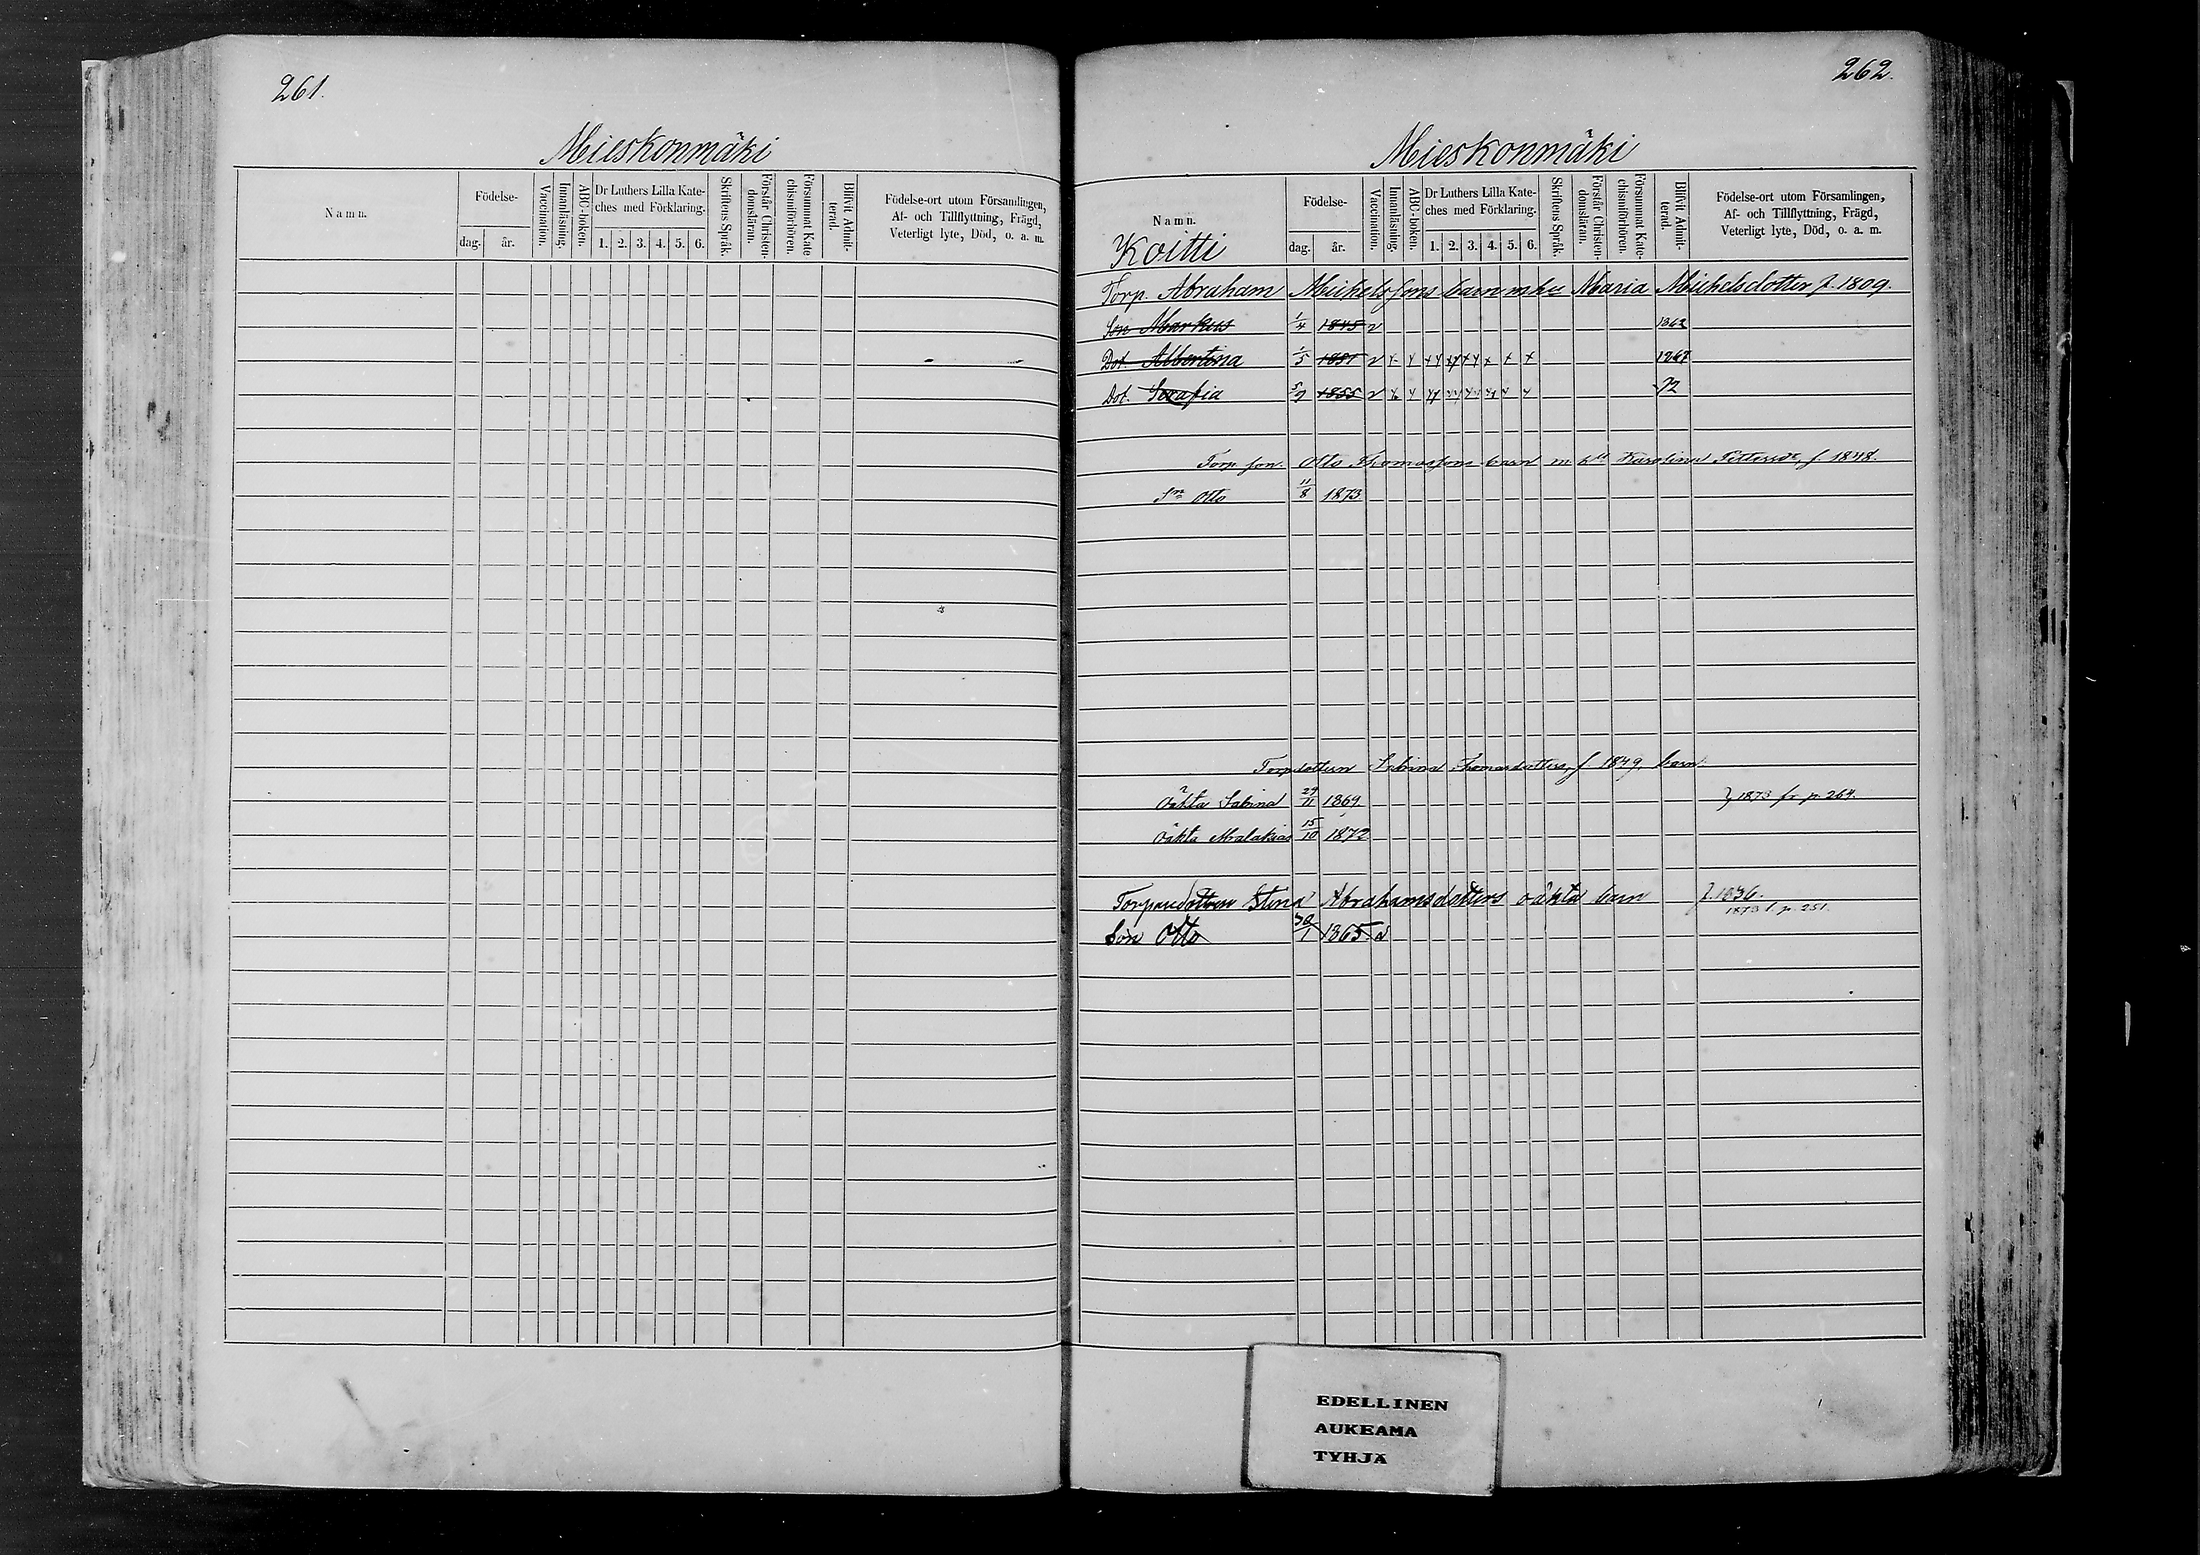 261.
Mieskonmäki
Namn.
Födelse-
dag. år.
Vaccination.
Innanläsning.
ABC-boken.
Dr Luthers Lilla Kate-
ches med Förklaring.
1. 2. 3. 4. 5. 6.
Skriftens Språk.
Förstår Christen-
domsläran.
Försummat Kate
chismiförhören.
Blifvit Admit-
terad.
Födelse-ort utom Församlingen,
Af- och Tillflyttning, Frägd,
Veterligt lyte, Död, o. a. m.
262.
Mieskonmäki
Namn.
Koitti
Födelse-
dag. år.
Vaccination.
Innanläsning.
ABC-boken.
Dr Luthers Lilla Kate-
ches med Förklaring.
1. 2. 3. 4. 5. 6.
Skriftens Språk.
Förstår Christen-
domsläran.
Försummat Kate-
chismiförhören.
Blifvit Admit-
terad.
Födelse-ort utom Församlingen,
Af- och Tillflyttning, Frägd,
Veterligt lyte, Död, o. a. m.
Torp. Abraham Michelssons barn m hu Maria Michelsdotter f. 1809.
Son Markus 1/4 1845 v 1862
Dot. Albertina 1/5 1851 v 1867
Dot. Serafia 5/9 1855 v 72
Torp son. Otto Thomassons barn m Karolina f. 1848.
Sn Otto 11/8 1873
Torpdottern Sabina Thomasdotters, f 1849, barn
Oäkta Sabina 29/11 1869 1873 fr p. 264.
Oäkta Malakias 15/10 1872
Torparedottren Stina Abrahamsdotters oäkta barn f. 1836.
1873 t. p. 251.
Son Otto 30/1 1865 v
EDELLINEN
AUKEAMA
TYHJÄ